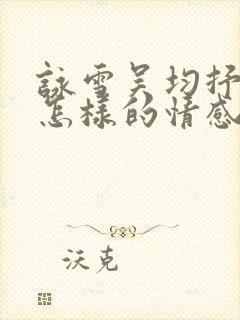 詠雪吴均抒
怎樣的情感
沃克